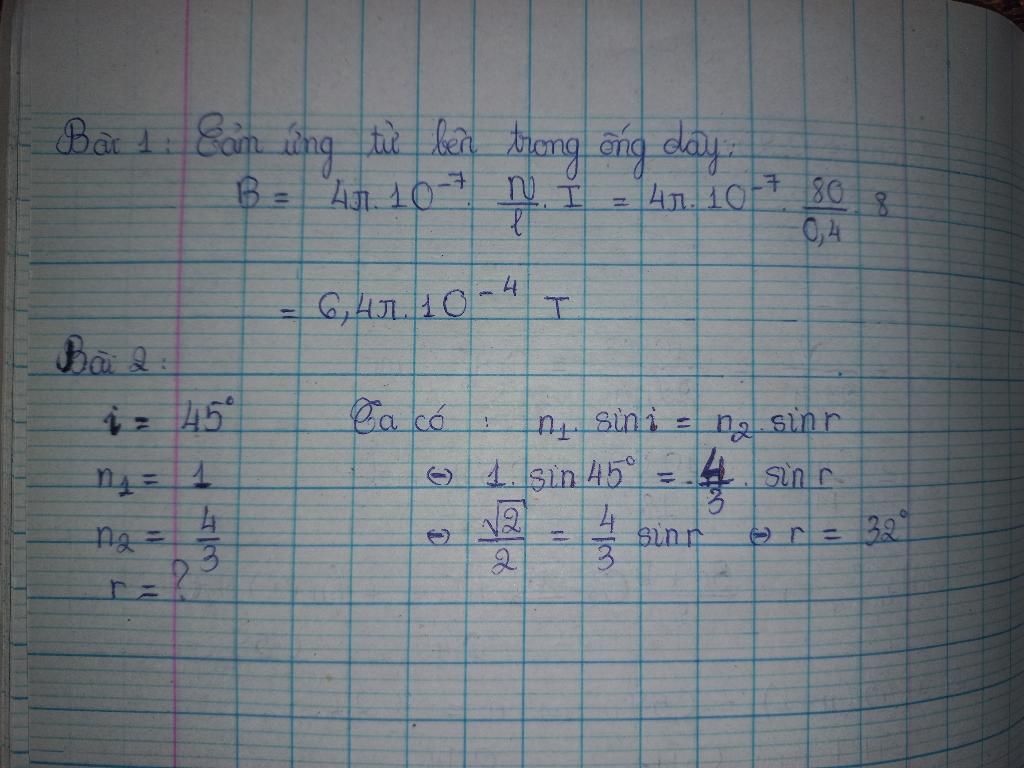 Bài 1: Cảm ứng từ bên trong ống dây:
B = 4π.10⁻⁷. N/l . I = 4π.10⁻⁷. 80/0,4 . 8
= 6,4π.10⁻⁴ T
Bài 2:
i = 45° Ta có : n₁. sin i = n₂. sin r
n₁ = 1 ⇔ 1. sin 45° = 4/3. sin r
n₂ = 4/3 ⇔ √2/2 = 4/3 sin r ⇔ r = 32°
r = ?